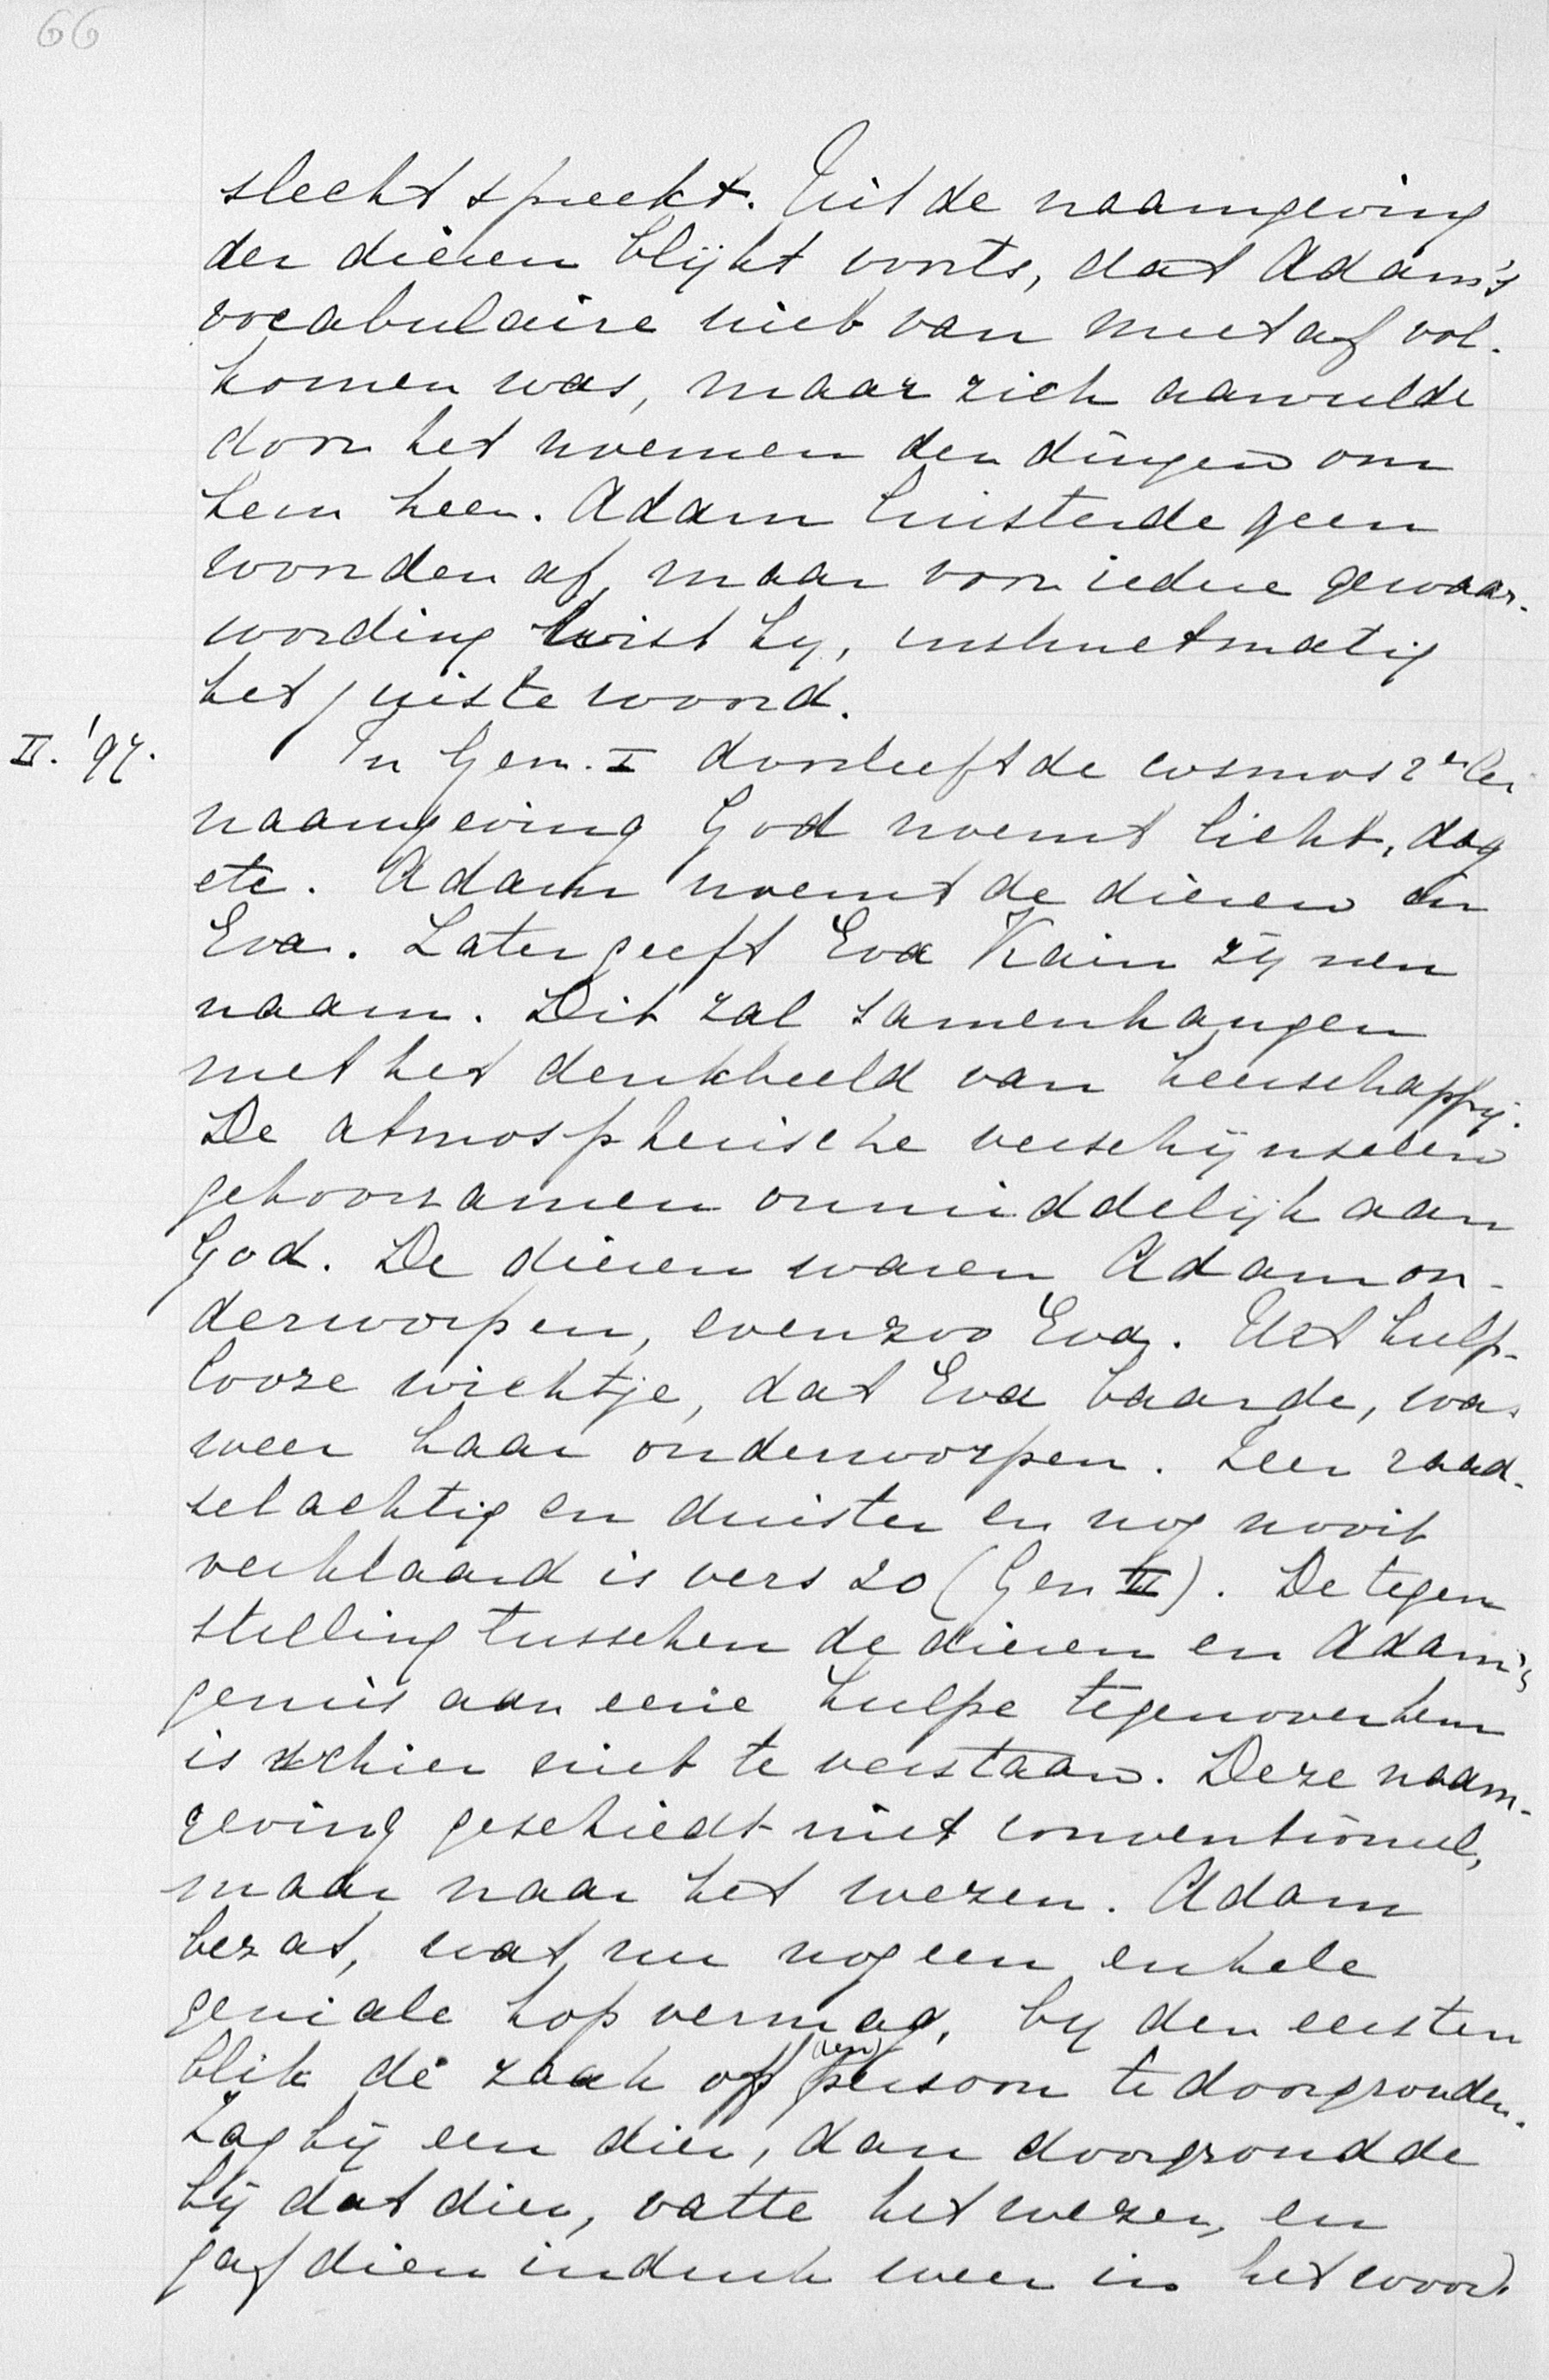 66
slecht spreekt. Uit de naamgeving
der dieren blijkt voorts, dat Adam's
vocabulaire niet van meet af vol-
komen was, maar zich aanvulde
door het noemen der dingen om
hem heen. Adam luisterde geen
woorden af, maar voor iedere gewaar-
wording wist hy, instinctmatig
het juiste woord.
II. '97. In Gen. I doorleeft de cosmos 2erlei
naamgeving God noemt licht, dag
etc. Adam noemt de dieren en
Eva. Later geeft Eva Kain zynen
naam. Dit zal samenhangen
met het denkbeeld van heerschappij.
De atmospherische verschijnselen
gehoorzamen onmiddelijk aan
God. De dieren waren Adam on-
derworpen, evenzoo Eva. Het hulp-
looze wichtje, dat Eva baarde, was
weer haar onderworpen. Zeer raad-
selachtig en duister en nog nooit
verklaard is vers 20 (Gen II). De tegen
stelling tusschen de dieren en Adam's
gemis aan eene hulpe tegenover hem
is schier niet te verstaan. Deze naam-
geving geschiedt niet conventioneel,
maar naar het wezen. Adam
bezat, wat nu nog een enkele
geniale kop vermag, by den eersten
blik de zaak of (een) persoon te doorgronden.
Zag hij een dier, dan doorgrondde
hij dat dier, vatte het wezen, en
gaf dien indruk weer in het woord.